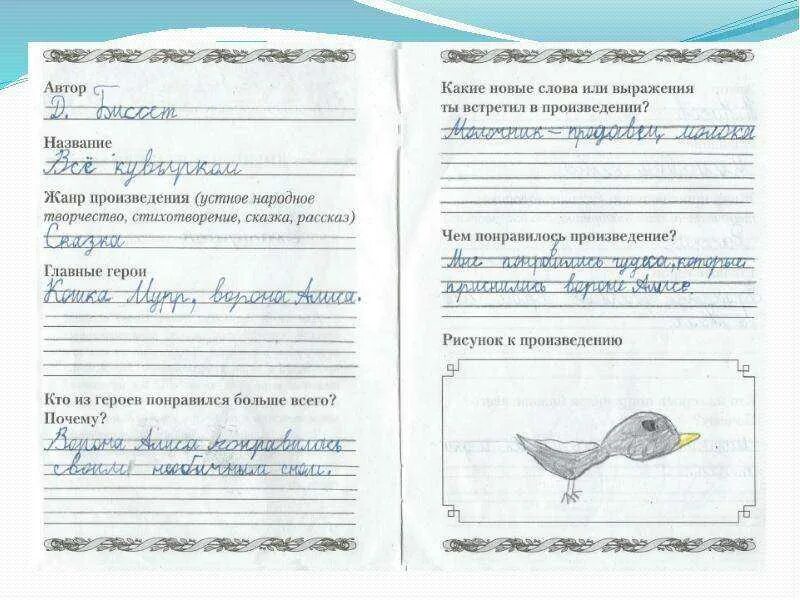 Автор
Д. Биссет
Название
Всё кувырком
Жанр произведения (устное народное
творчество, стихотворение, сказка, рассказ)
Сказка
Главные герои
Кошка Мурр, ворона Алиса.
Кто из героев понравился больше всего?
Почему?
Ворона Алиса понравилась
своим необичным сном.
Какие новые слова или выражения
ты встретил в произведении?
Молочник – продавец молока
Чем понравилось произведение?
Мне понравились чудеса, которые
приснились вороне Алисе.
Рисунок к произведению